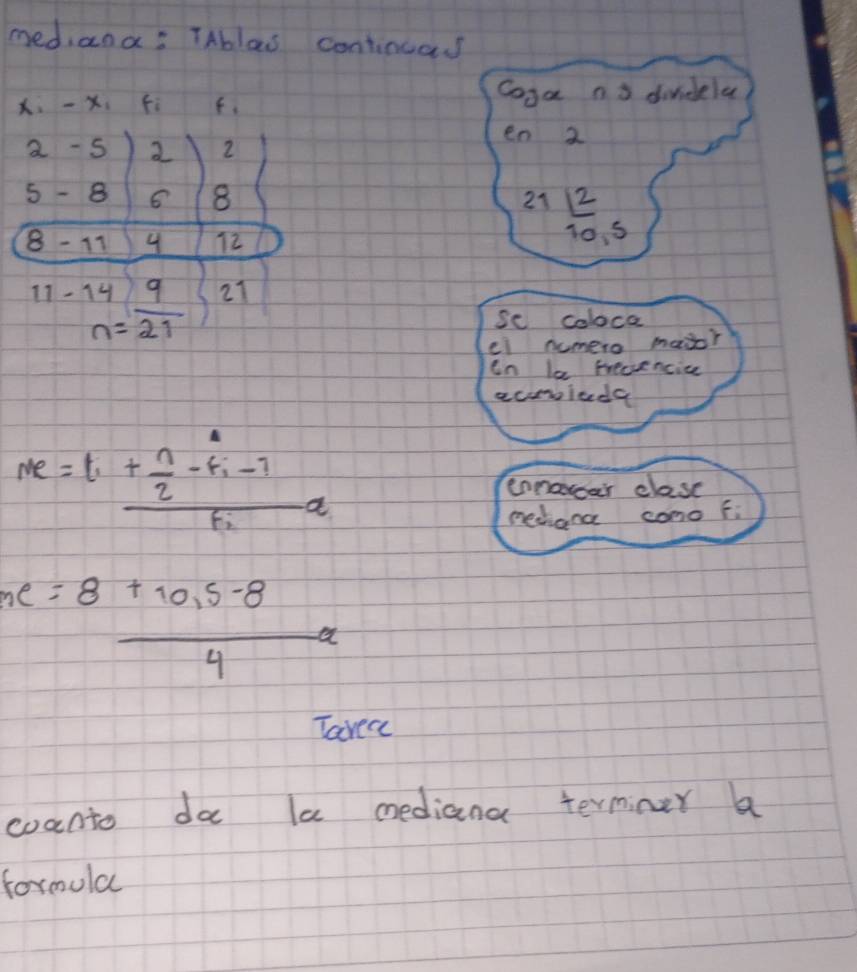 mediana: TAblas continuas
xi - xi fi Fi
2 - 5 2 2
5 - 8 6 8
8 - 11 4 12
11 - 14 9 21
n = 21
Coga n y dividela
en 2
21 2
10,5
se coloca
el numero maior
en la frecuencia
acumulada
enmarcar clase
mediana como Fi
Me = Li + n/2 - Fi - 1
fi a
me = 8 + 10,5 - 8
4 a
Tarea
cuanto da la mediana terminar la
formula